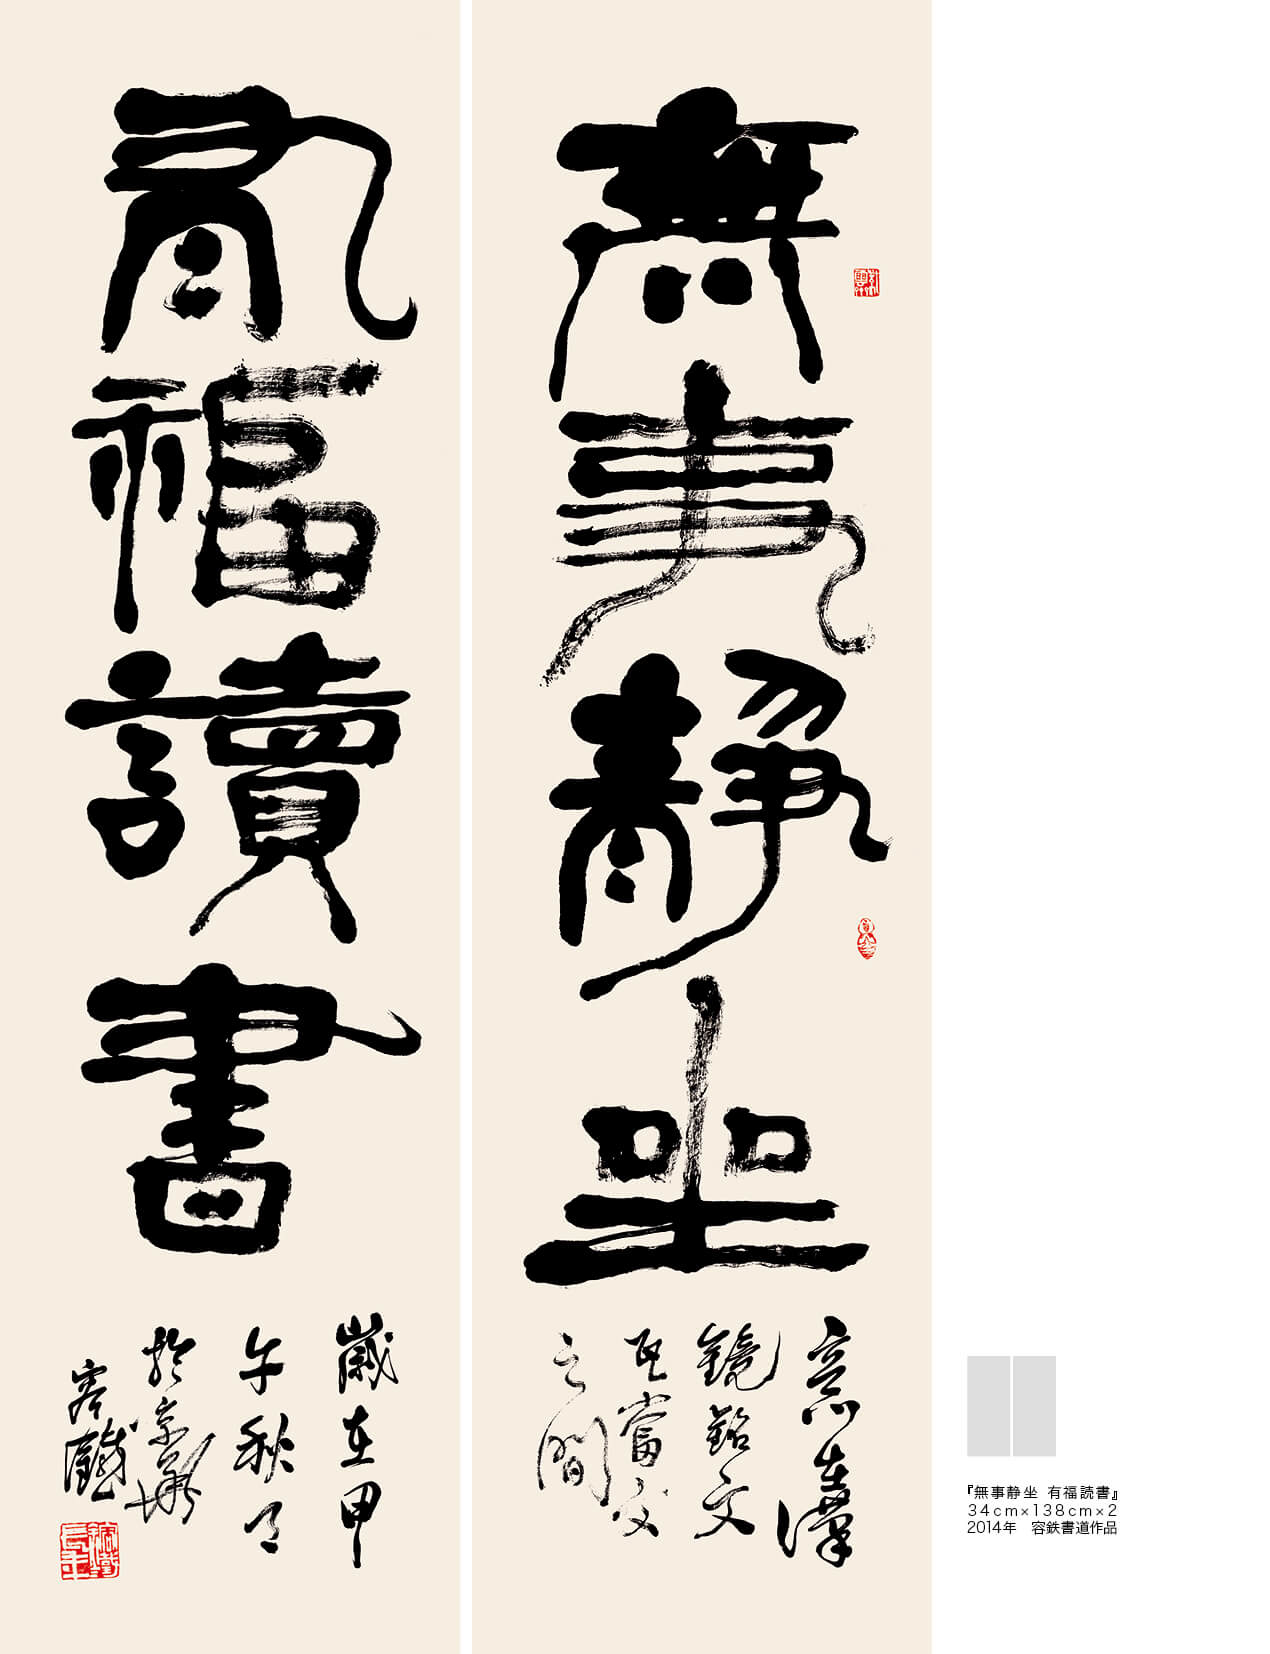 無事静坐
意在漢
鏡銘文
瓦當文
之間
有福讀書
歳在甲
午秋月
於京華
容鐵
『無事静坐 有福読書』
34cm×138cm×2
2014年 容鉄書道作品